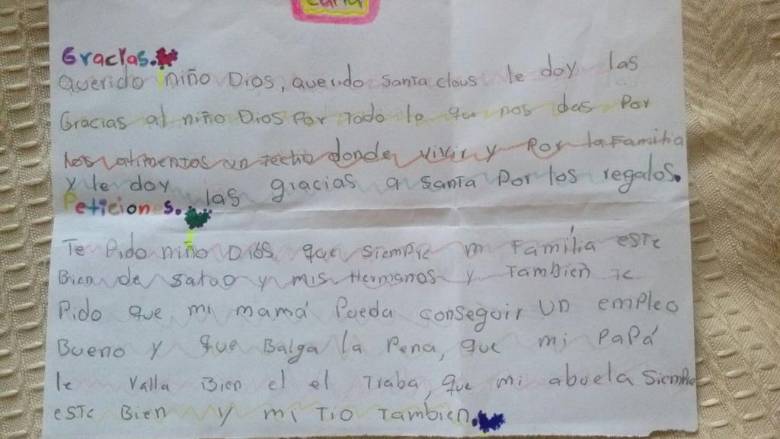 Carta
Gracias.
Querido niño Dios, querido santa claus le doy las
Gracias al niño Dios Por Todo lo que nos das Por
los alimentos un techo donde vivir y Por la Familia
y le doy las gracias a santa Por los regalos.
Peticiones.
Te Pido niño Dios que siempre mi Familia este
Bien de salud y mis Hermanos y Tambien Te
Pido que mi mamá Pueda conseguir un empleo
Bueno y que Balga la Pena, que mi PaPá
le valla Bien el el Traba, que mi abuela siempre
este Bien y mi Tio Tambien.